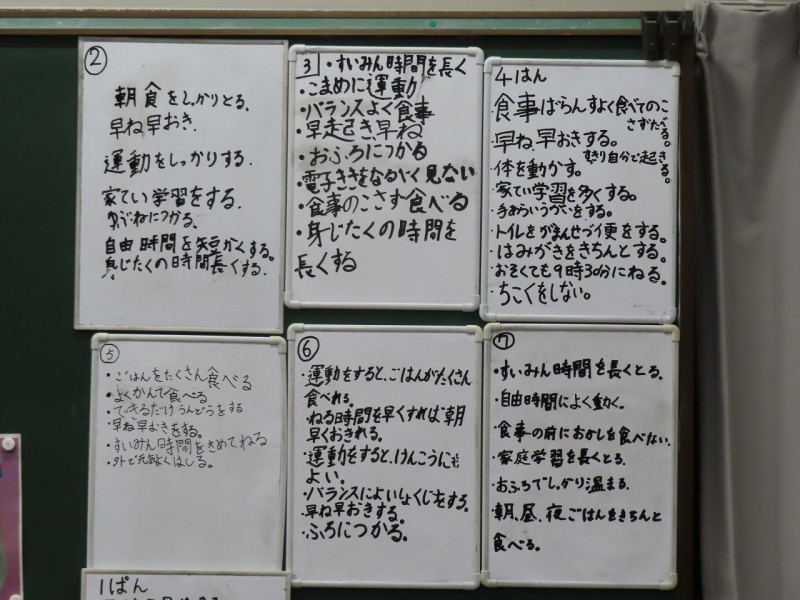 ②
朝食をしっかりとる。
早ね早おき。
運動をしっかりする。
家てい学習をする。
自由時間を短かくする。
身じたくの時間長くする。
3 ・すいみん時間を長く
・こまめに運動
・バランスよく食事
・早走起き、早ね
・おふろにつかる
・電子ききをなるべく見ない
・食事のこさず食べる
・身じたくの時間を
長くする
4はん
・食事ばらんすよく食べてのこ
さずたべる。
・早ね、早おきする。
すっきり自分で起きる。
・体を動かす。
・家てい学習を多くする。
・手あらいうがいをする。
・トイレをがまんせづ便をする。
・はみがきをきちんとする。
・おそくても9時30分にねる。
・ちこくをしない。
⑤
・ごはんをたくさん食べる
・よくかんで食べる
・できるだけうんどうをする
・早ね早おきをする。
・すいみん時間をきめてねる
・外で元気よくはしる。
⑥
・運動をすると、ごはんがたくさん
食べれる。
・ねる時間を早くすれば朝
早くおきれる。
・運動をすると、けんこうにも
よい。
・バランスによいしょくじをする。
・早ね早おきする。
・ふろにつかる。
⑦
・すいみん時間を長くとる。
・自由時間によく動く。
・食事の前におかしを食べない。
・家庭学習を長くとる。
・おふろでしっかり温まる。
・朝、昼、夜ごはんをきちんと
食べる。
1ぱん